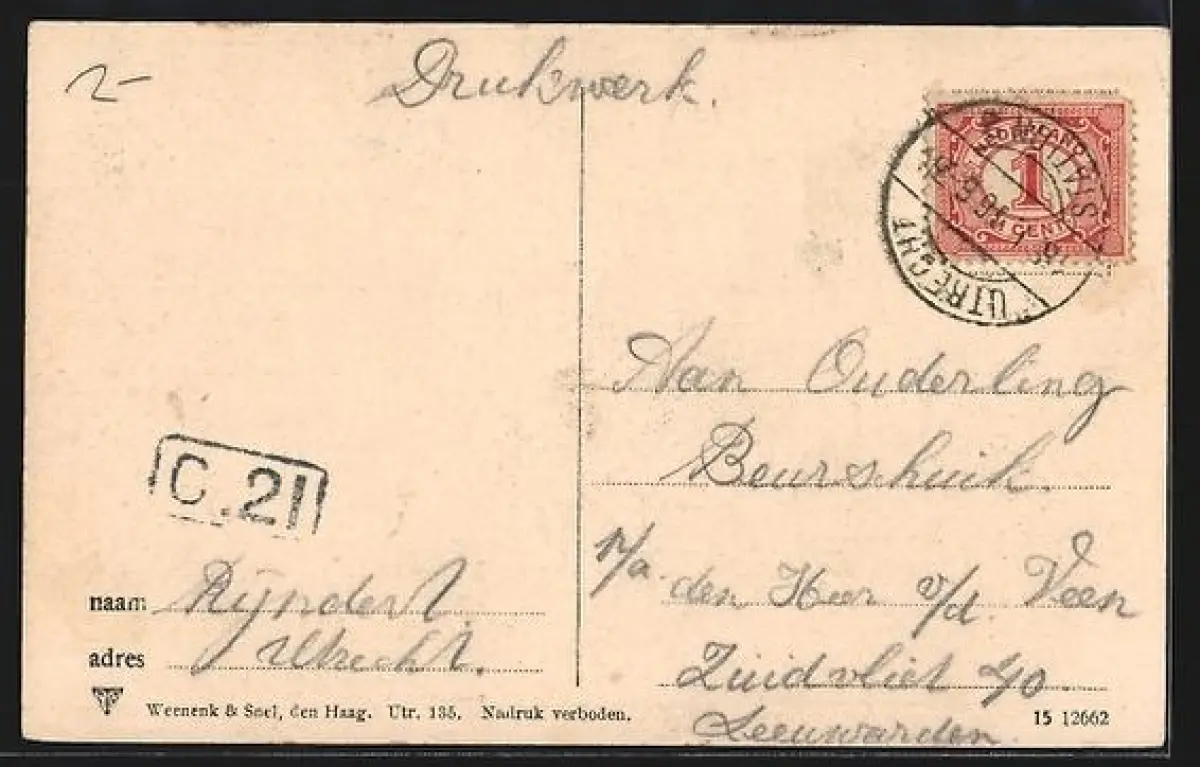 2-
Drukwerk.
NEDERLAND
1
CENT
UTRECHT
Aan Ouderling
Beurshuik
p/a den Heer v/d. Veen
Zuidvliet 40
Leeuwarden
C.21
naam Rijndert
adres Utrecht.
Weenenk & Snel, den Haag. Utr. 135. Nadruk verboden.
15 12662